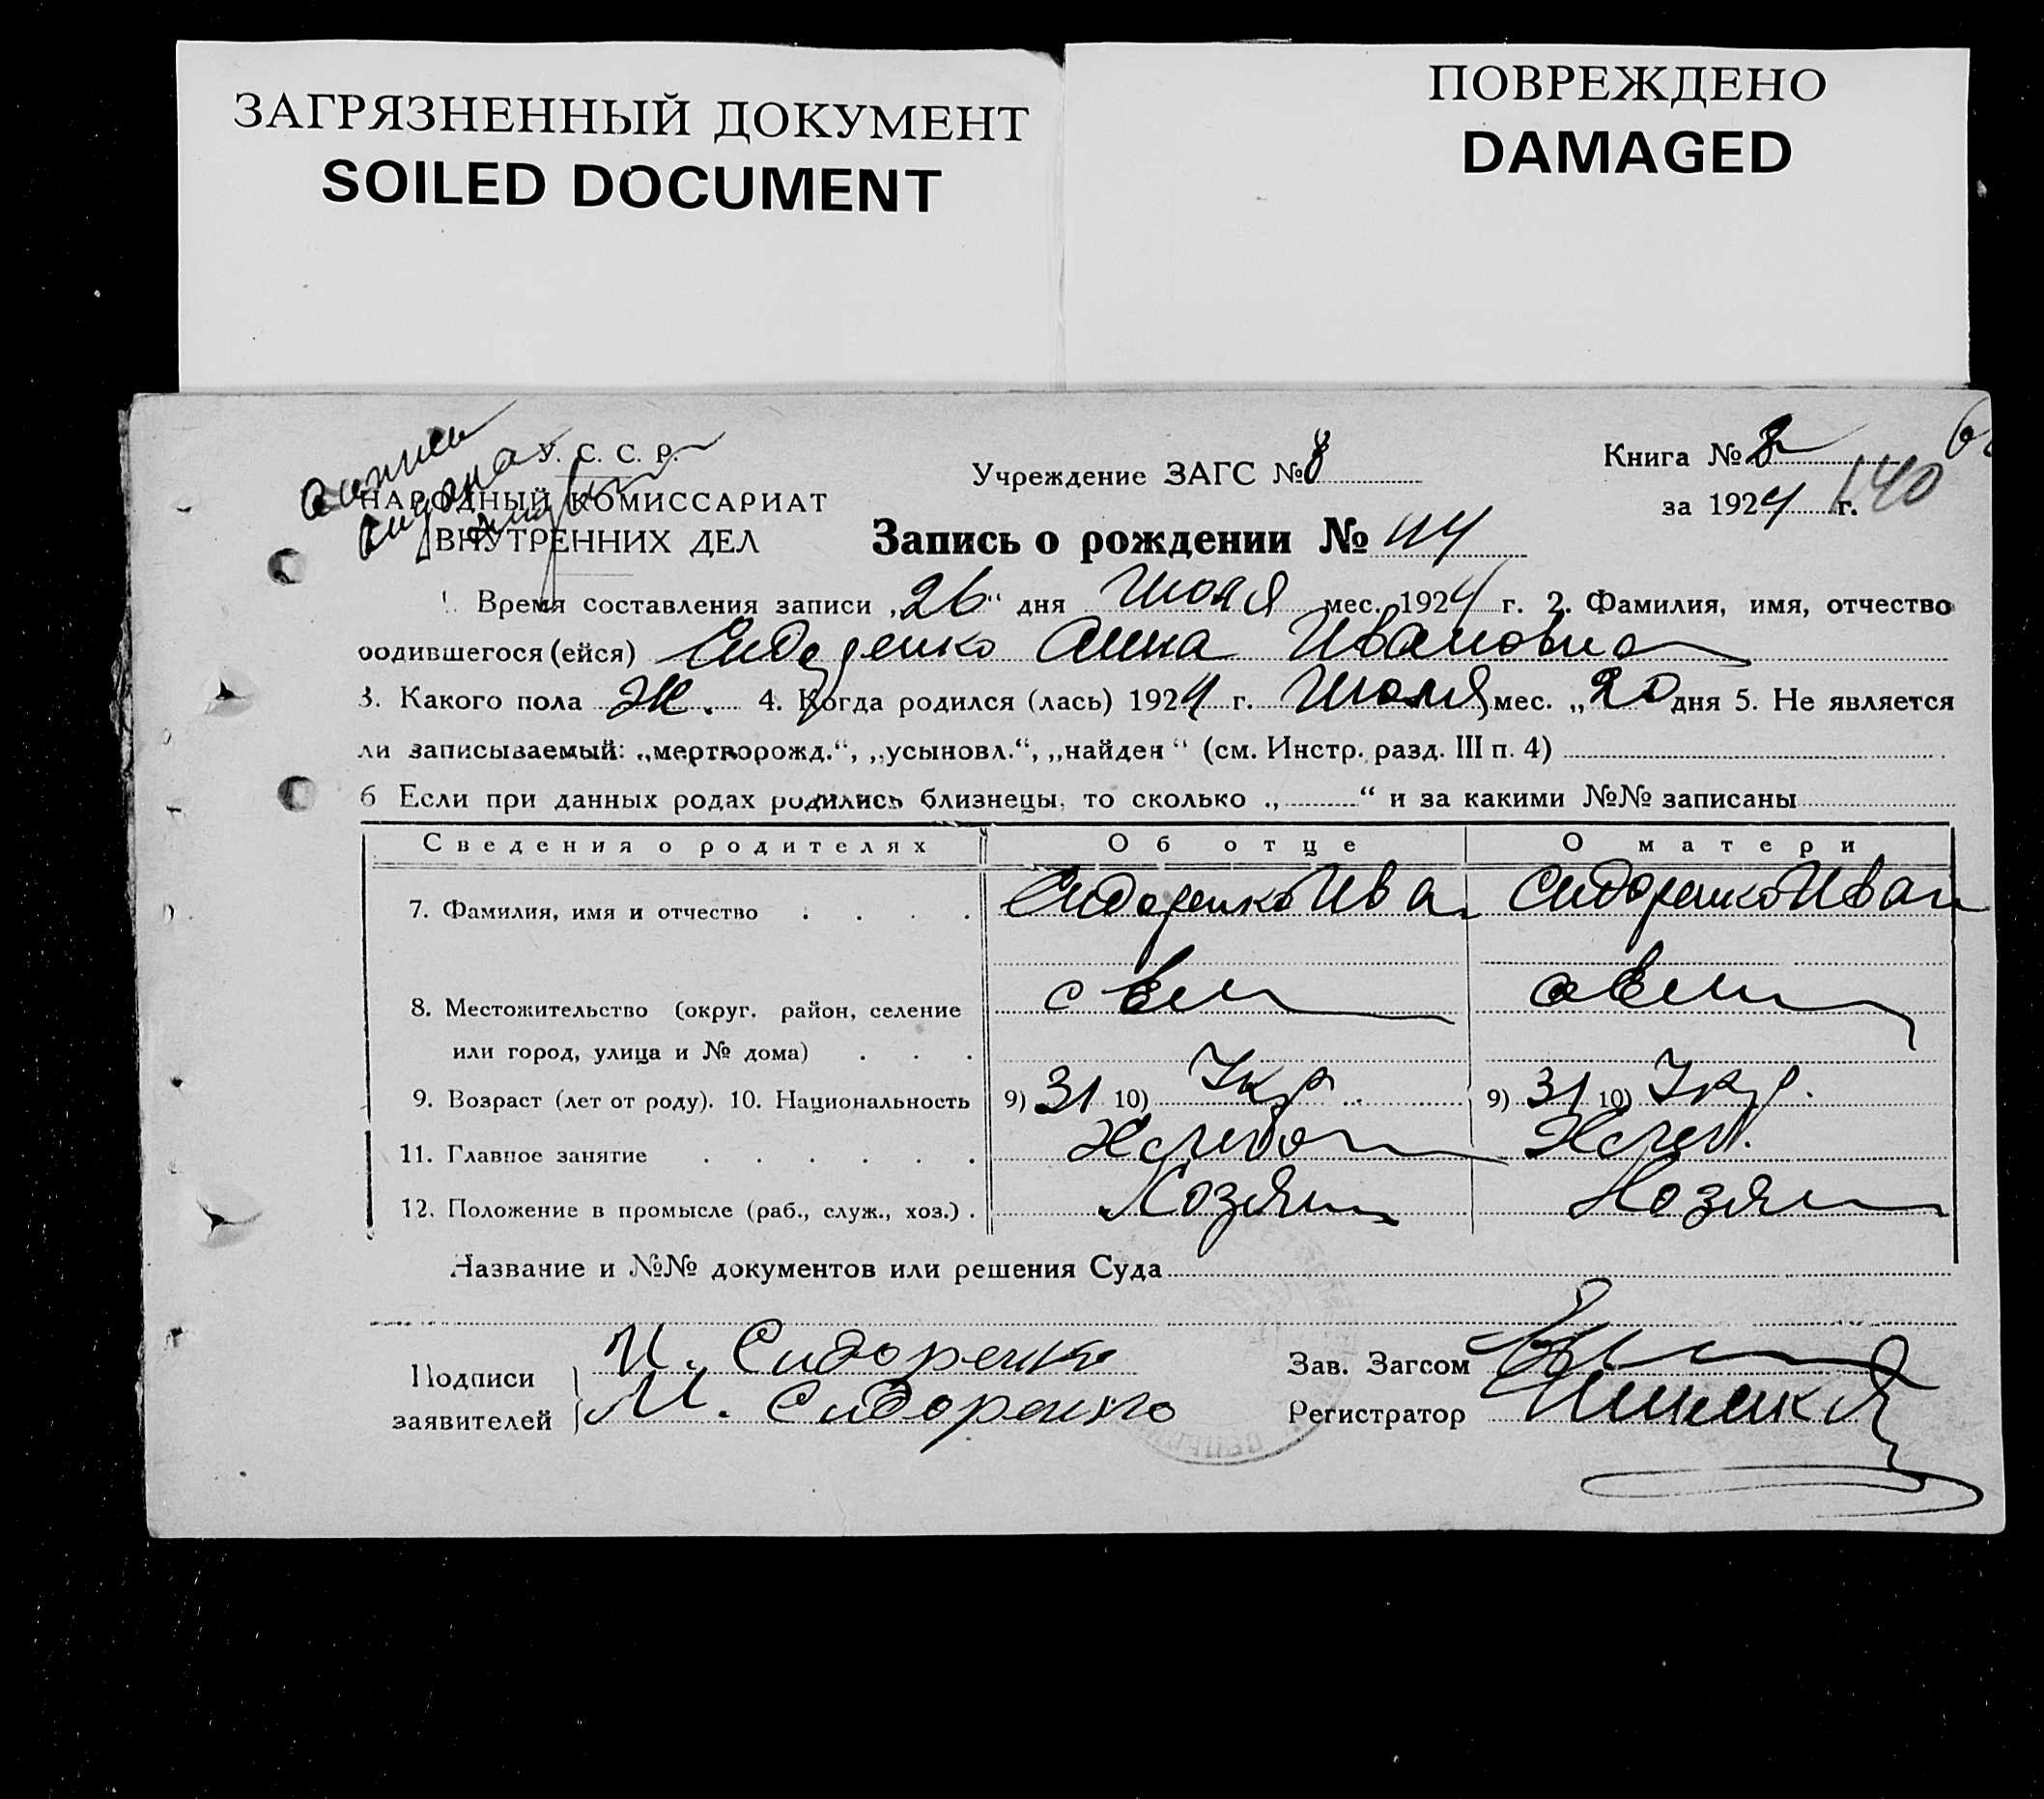 ЗАГРЯЗНЕННЫЙ ДОКУМЕНТ
SOILED DOCUMENT
ПОВРЕЖДЕНО
DAMAGED
У. С. С. Р.
НАРОДНЫЙ КОМИССАРИАТ
ВНУТРЕННИХ ДЕЛ
Учреждение ЗАГС № 8
Книга № 8
за 1924 г. 140
Запись о рождении № 44
Время составления записи „26“ дня Июля мес. 1924 г. 2. Фамилия, имя, отчество
родившегося (ейся) Сидоренко Анна Ивановна
3. Какого пола Ж. 4. Когда родился (лась) 1924 г. Июля мес. „20 дня 5. Не является
ли записываемый: „мертворожд.“, „усыновл.“, „найден“ (см. Инстр. разд. III п. 4)
6 Если при данных родах родились близнецы, то сколько „ “ и за какими №№ записаны
Сведения о родителях Об отце О матери
7. Фамилия, имя и отчество Сидоренко Иван Сидоренко Иван
8. Местожительство (округ. район, селение
или город, улица и № дома)
9. Возраст (лет от роду). 10. Национальность 9) 31 10) Укр. 9) 31 10) Укр.
11. Главное занятие Хлебо Хлеб.
12. Положение в промысле (раб., служ., хоз.) Хозяин Хозяин
Название и №№ документов или решения Суда
Подписи И. Сидоренко Зав. Загсом
заявителей М. Сидоренко Регистратор